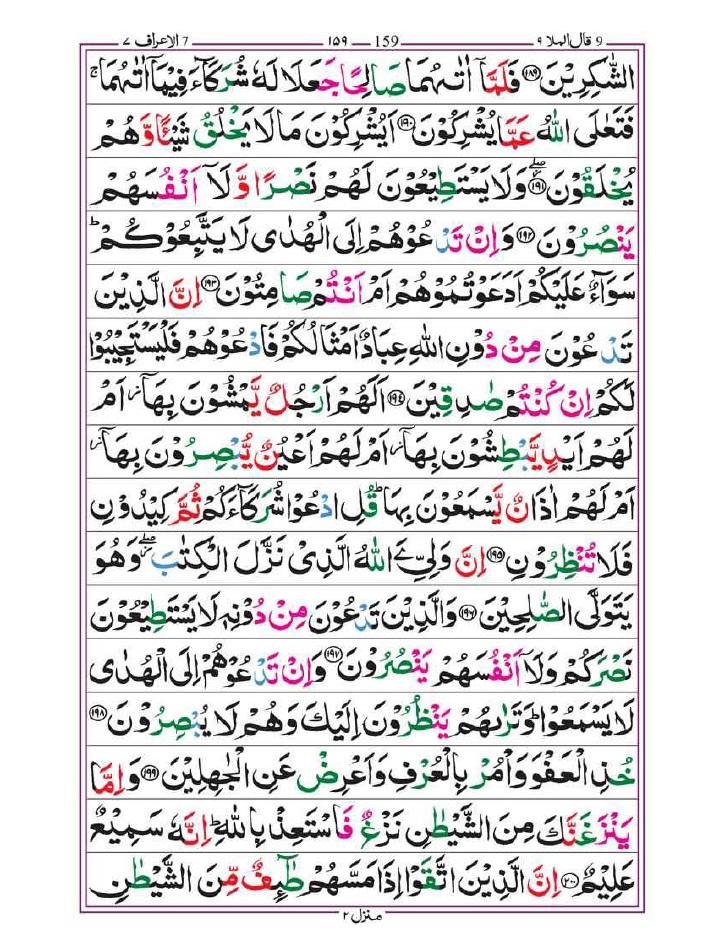 9 قال الملا ٩ 159 — ١٥٩ 7 الاعراف ٧
الشّٰكِرِيْنَ ﴿۱۸۹﴾ فَلَمَّاۤ اٰتٰىهُمَا صَالِحًا جَعَلَا لَهٗ شُرَكَآءَ فِيْمَاۤ اٰتٰىهُمَا ۚ
فَتَعٰلَى اللّٰهُ عَمَّا يُشْرِكُوْنَ ﴿۱۹۰﴾ اَيُشْرِكُوْنَ مَا لَا يَخْلُقُ شَيْـًٔا وَّ هُمْ
يُخْلَقُوْنَ ﴿۱۹۱﴾ ۖ وَ لَا يَسْتَطِيْعُوْنَ لَهُمْ نَصْرًا وَّ لَاۤ اَنْفُسَهُمْ
يَنْصُرُوْنَ ﴿۱۹۲﴾ وَ اِنْ تَدْعُوْهُمْ اِلَى الْهُدٰى لَا يَتَّبِعُوْكُمْ ؕ
سَوَآءٌ عَلَيْكُمْ اَدَعَوْتُمُوْهُمْ اَمْ اَنْتُمْ صَامِتُوْنَ ﴿۱۹۳﴾ اِنَّ الَّذِيْنَ
تَدْعُوْنَ مِنْ دُوْنِ اللّٰهِ عِبَادٌ اَمْثَالُكُمْ فَادْعُوْهُمْ فَلْيَسْتَجِيْبُوْا
لَكُمْ اِنْ كُنْتُمْ صٰدِقِيْنَ ﴿۱۹۴﴾ اَلَهُمْ اَرْجُلٌ يَّمْشُوْنَ بِهَاۤ ؗ اَمْ
لَهُمْ اَيْدٍ يَّبْطِشُوْنَ بِهَاۤ ؗ اَمْ لَهُمْ اَعْيُنٌ يُّبْصِرُوْنَ بِهَاۤ ؗ
اَمْ لَهُمْ اٰذَانٌ يَّسْمَعُوْنَ بِهَا ؕ قُلِ ادْعُوْا شُرَكَآءَكُمْ ثُمَّ كِيْدُوْنِ
فَلَا تُنْظِرُوْنِ ﴿۱۹۵﴾ اِنَّ وَلِيِّ َۧ اللّٰهُ الَّذِيْ نَزَّلَ الْكِتٰبَ ۖؗ وَ هُوَ
يَتَوَلَّى الصّٰلِحِيْنَ ﴿۱۹۶﴾ وَ الَّذِيْنَ تَدْعُوْنَ مِنْ دُوْنِهٖ لَا يَسْتَطِيْعُوْنَ
نَصْرَكُمْ وَ لَاۤ اَنْفُسَهُمْ يَنْصُرُوْنَ ﴿۱۹۷﴾ وَ اِنْ تَدْعُوْهُمْ اِلَى الْهُدٰى
لَا يَسْمَعُوْا ؕ وَ تَرٰىهُمْ يَنْظُرُوْنَ اِلَيْكَ وَ هُمْ لَا يُبْصِرُوْنَ ﴿۱۹۸﴾
خُذِ الْعَفْوَ وَ اْمُرْ بِالْعُرْفِ وَ اَعْرِضْ عَنِ الْجٰهِلِيْنَ ﴿۱۹۹﴾ وَ اِمَّا
يَنْزَغَنَّكَ مِنَ الشَّيْطٰنِ نَزْغٌ فَاسْتَعِذْ بِاللّٰهِ ؕ اِنَّهٗ سَمِيْعٌ
عَلِيْمٌ ﴿۲۰۰﴾ اِنَّ الَّذِيْنَ اتَّقَوْا اِذَا مَسَّهُمْ طٰٓىِٕفٌ مِّنَ الشَّيْطٰنِ
منزل ۲